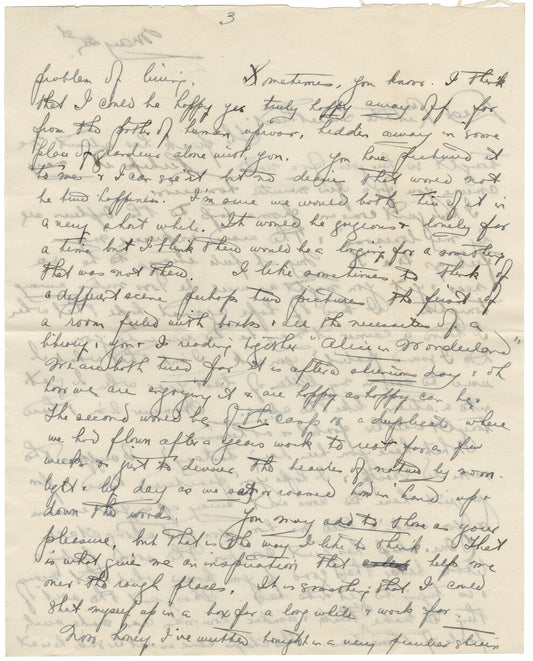 3
problem of living. Sometimes, you know. I think
that I could be happy yes truly happy away off far
from the paths of human uproar, hidden away in some
place of alone with you. You have pictured it
to me & I can see it but no dear that would not
be true happiness. I'm sure we would both tire of it in
a very short while. It would be gorgeous & lonely for
a time but I think there would be a longing for a something
that was not there. I like sometimes to think of
a different scene perhaps two pictures the first of
a room filled with books & all the necessities of a
library & you & I reading together "Alice in Wonderland"
We are both tired for it is after a day & oh
how we are enjoying it & are happy as happy can be.
The second would be of the camp & a duplicate where
we had flown after a years work to rest for a few
weeks & just to devour the beauties of nature by moon-
light & by day as we sat or roamed hand in hand up &
down the woods. You may add to these as your
pleasure, but that is the way I like to think. That
is what gives me an inspiration that help me
over the rough places. It is something that I could
shut myself up in a box for a long while & work for.
Now honey I've written tonight in a very peculiar strain